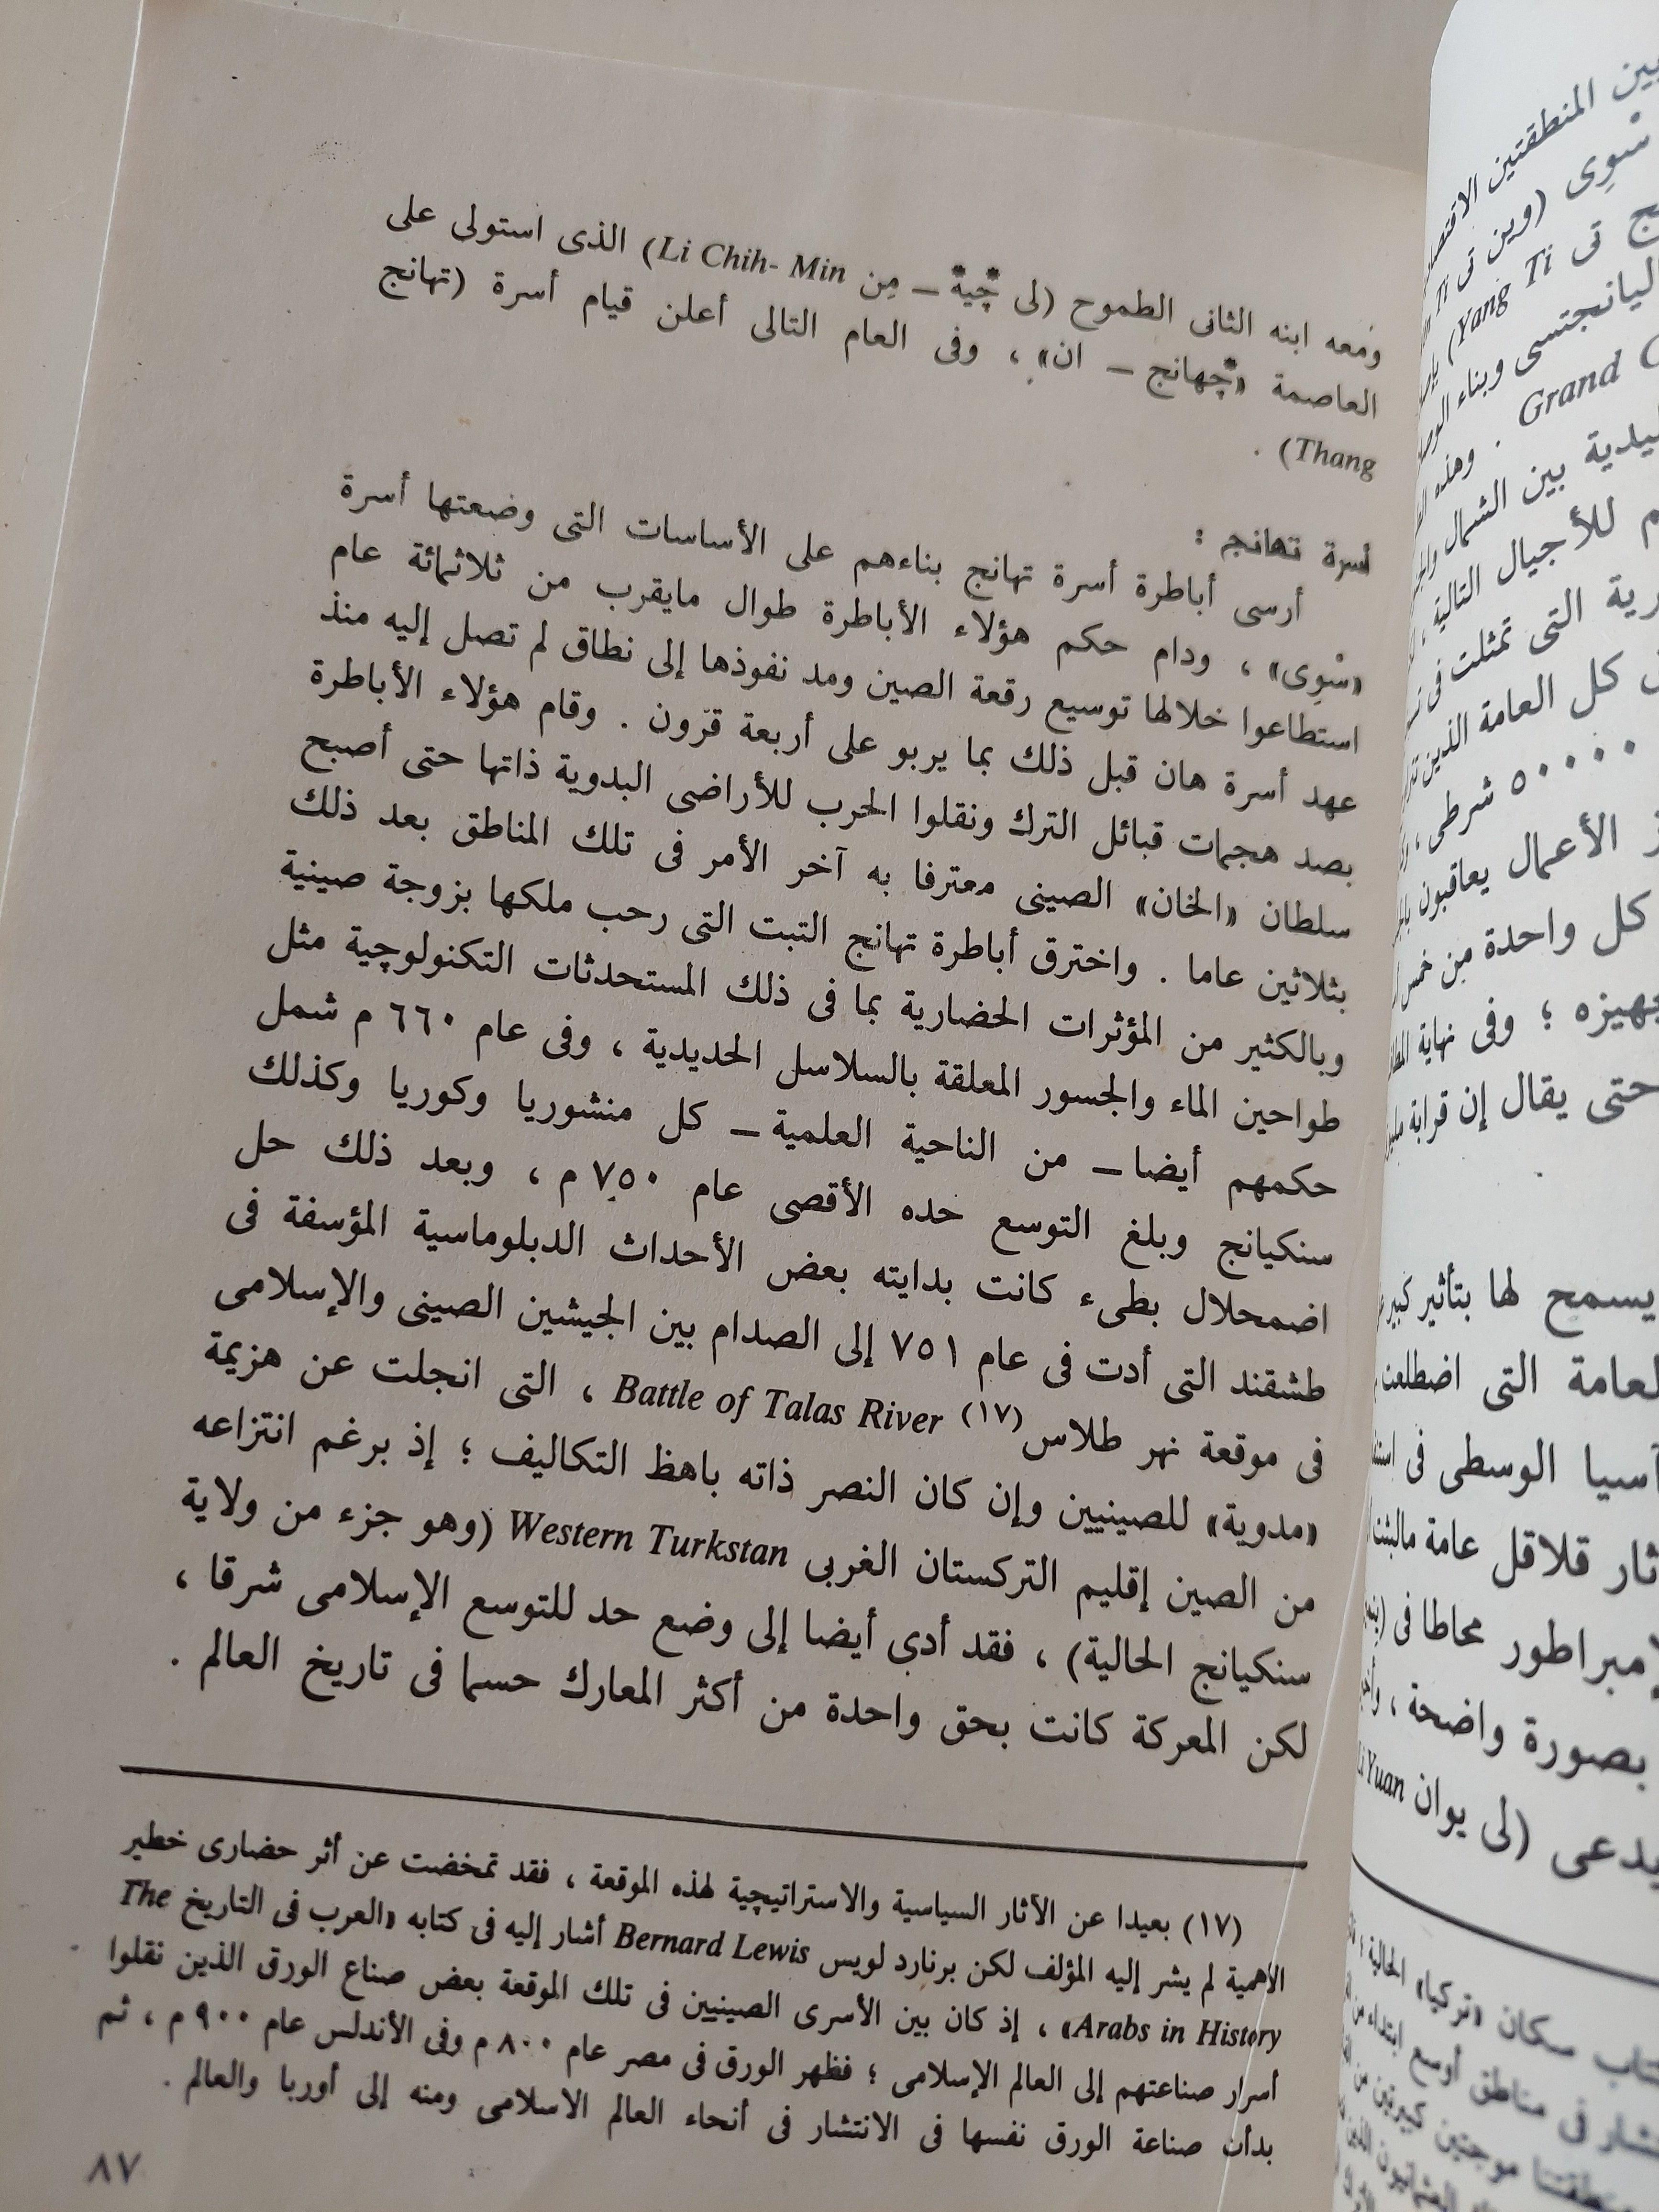 ومعه ابنه الثانى الطموح (لى چيه* – مِن Li Chih- Min) الذى استولى على
العاصمة «چهانج* – ان» ، وفى العام التالى أعلن قيام أسرة (تهانج
Thang) .
أسرة تهانج :
أرسى أباطرة أسرة تهانج بناءهم على الأساسات التى وضعتها أسرة
«سْوِى» ، ودام حكم هؤلاء الأباطرة طوال مايقرب من ثلاثمائة عام
استطاعوا خلالها توسيع رقعة الصين ومد نفوذها إلى نطاق لم تصل إليه منذ
عهد أسرة هان قبل ذلك بما يربو على أربعة قرون . وقام هؤلاء الأباطرة
بصد هجمات قبائل الترك ونقلوا الحرب للأراضى البدوية ذاتها حتى أصبح
سلطان «الخان» الصينى معترفا به آخر الأمر فى تلك المناطق بعد ذلك
بثلاثين عاما . واخترق أباطرة تهانج التبت التى رحب ملكها بزوجة صينية
وبالكثير من المؤثرات الحضارية بما فى ذلك المستحدثات التكنولوچية مثل
طواحين الماء والجسور المعلقة بالسلاسل الحديدية ، وفى عام ٦٦٠ م شمل
حكمهم أيضا – من الناحية العلمية – كل منشوريا وكوريا وكذلك
سنكيانج وبلغ التوسع حده الأقصى عام ٧٥٠ م ، وبعد ذلك حل
اضمحلال بطىء كانت بدايته بعض الأحداث الدبلوماسية المؤسفة فى
طشقند التى أدت فى عام ٧٥١ إلى الصدام بين الجيشين الصينى والإسلامى
فى موقعة نهر طلاس(١٧) Battle of Talas River ، التى انجلت عن هزيمة
«مدوية» للصينيين وإن كان النصر ذاته باهظ التكاليف ؛ إذ برغم انتزاعه
من الصين إقليم التركستان الغربى Western Turkstan (وهو جزء من ولاية
سنكيانج الحالية) ، فقد أدى أيضا إلى وضع حد للتوسع الإسلامى شرقا ،
لكن المعركة كانت بحق واحدة من أكثر المعارك حسما فى تاريخ العالم .
(١٧) بعيدا عن الآثار السياسية والاستراتيچية لهذه الموقعة ، فقد تمخضت عن أثر حضارى خطير
الأهمية لم يشر إليه المؤلف لكن برنارد لويس Bernard Lewis أشار إليه فى كتابه «العرب فى التاريخ The
Arabs in History» ، إذ كان بين الأسرى الصينيين فى تلك الموقعة بعض صناع الورق الذين نقلوا
أسرار صناعتهم إلى العالم الإسلامى ؛ فظهر الورق فى مصر عام ٨٠٠ م وفى الأندلس عام ٩٠٠ م ، ثم
بدأت صناعة الورق نفسها فى الانتشار فى أنحاء العالم الاسلامى ومنه إلى أوربا والعالم .
٨٧
بين المنطقتين
سْوِى (وين تى
تى Yang Ti)
اليانجتسى وبناء
Grand . وهذه
بين الشمال
للأجيال التالية
التى تمثلت فى
كل العامة الذين
٥٠٠٠٠ شرطى ،
الأعمال يعاقبون
كل واحدة من
؛ وفى نهاية
حتى يقال إن قرابة
يسمح لها بتأثير
العامة التى
آسيا الوسطى فى
قلاقل عامة
محاطا فى
بصورة واضحة ،
يدعى (لى يوان Li Yuan
سكان «تركيا» الحالية
فى مناطق أوسع ابتداء من
موجتين كبيرتين من